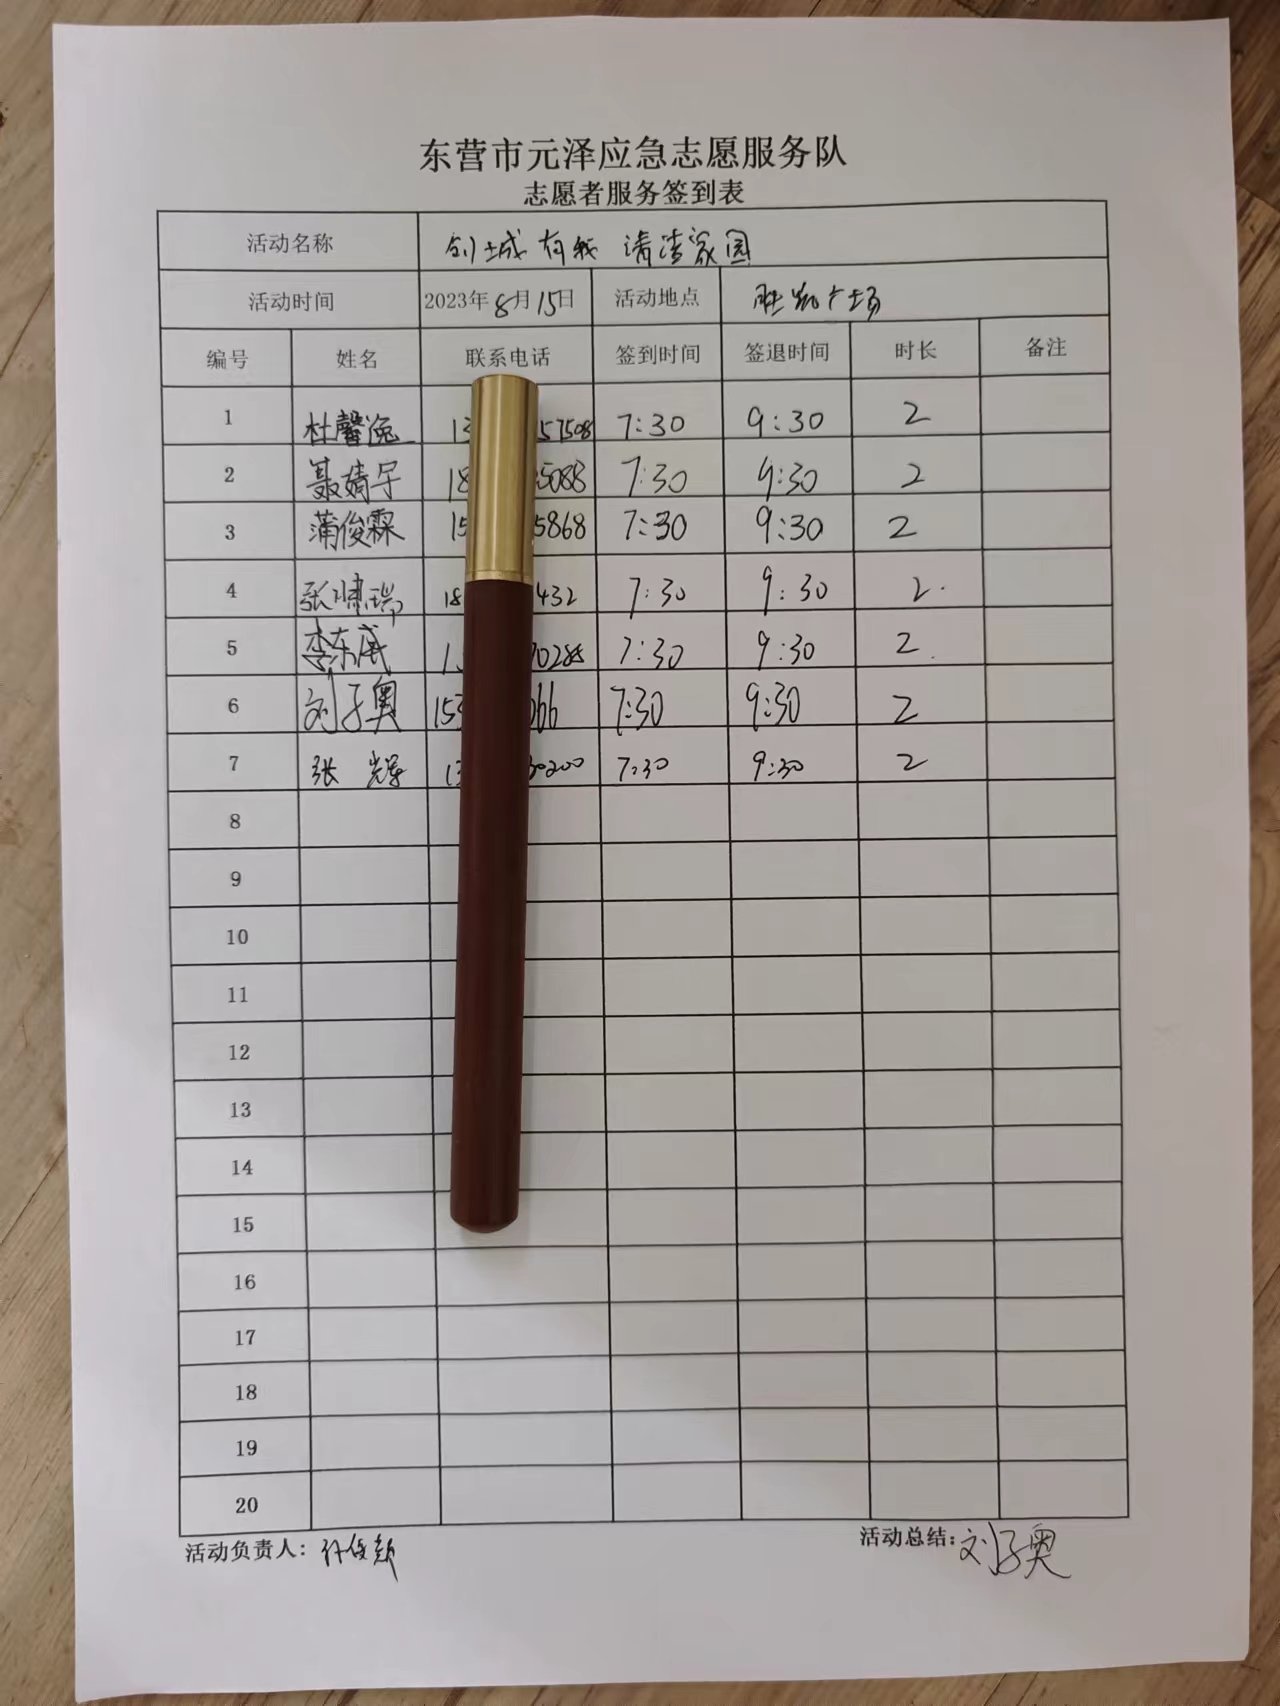 东营市元泽应急志愿服务队
志愿者服务签到表
活动名称 创城有我 清洁家园
活动时间 2023年8月15日 活动地点 胜凯广场
编号 姓名 联系电话 签到时间 签退时间 时长 备注
1 杜馨逸 13 57508 7:30 9:30 2
2 聂婧宇 18 5088 7:30 9:30 2
3 蒲俊霖 15 5868 7:30 9:30 2
4 张啸瑞 18 432 7:30 9:30 2
5 李东威 1 7:30 9:30 2
6 刘子奥 153 066 7:30 9:30 2
7 张辉 13 30200 7:30 9:30 2
8
9
10
11
12
13
14
15
16
17
18
19
20
活动负责人: 活动总结: 刘子奥